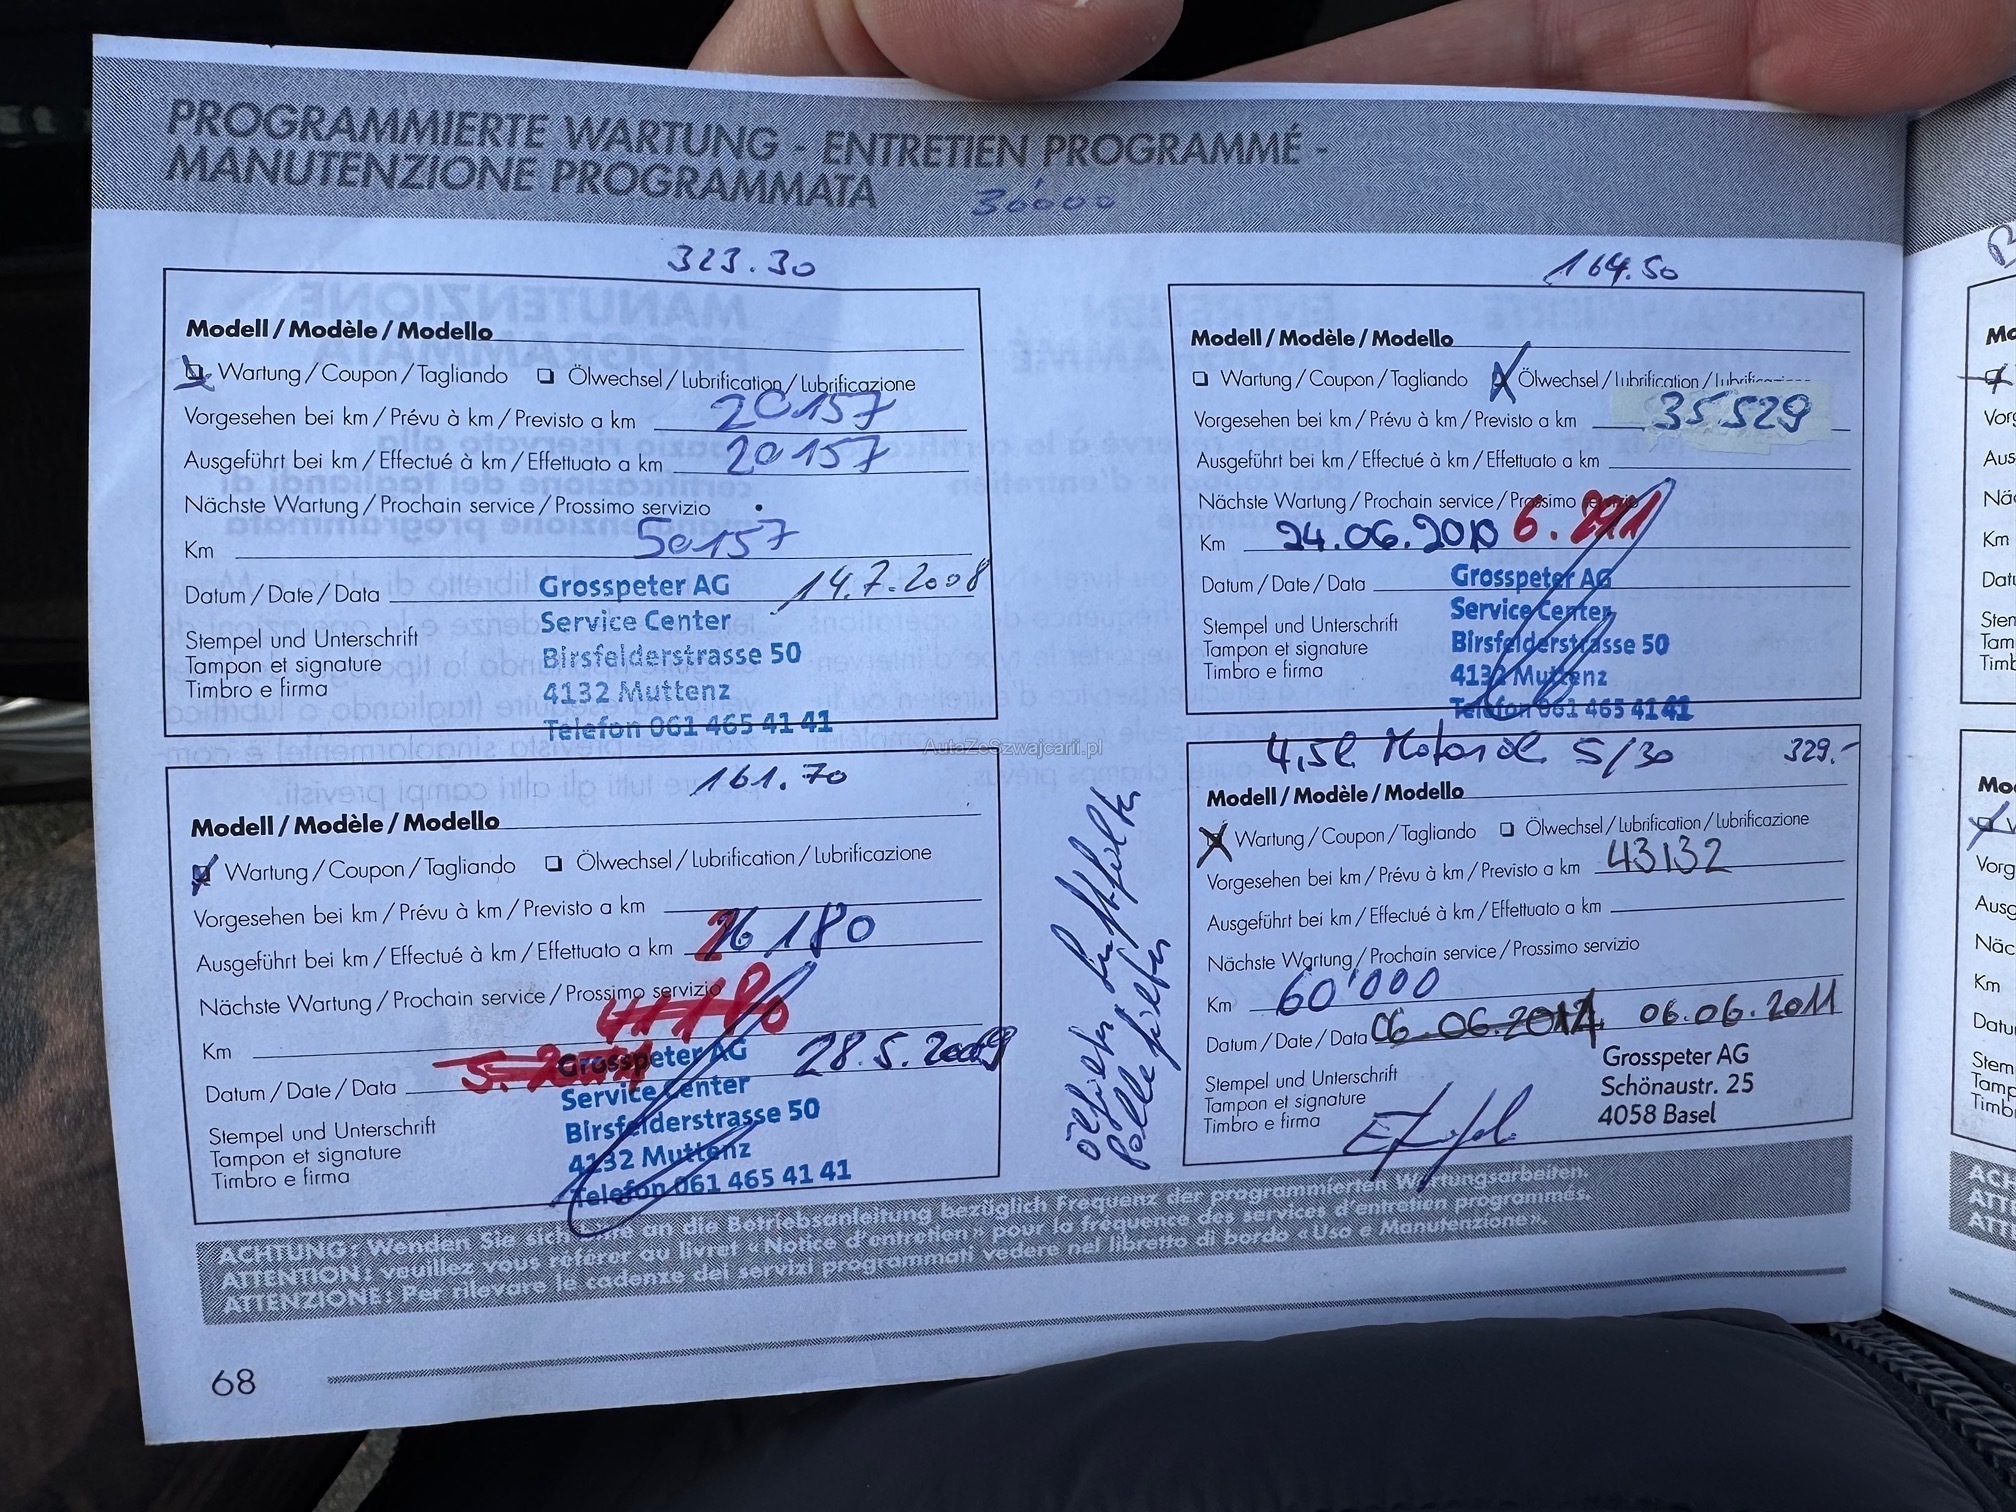 PROGRAMMIERTE WARTUNG - ENTRETIEN PROGRAMMÉ -
MANUTENZIONE PROGRAMMATA
30'000
323.30
Modell / Modèle / Modello
Wartung / Coupon / Tagliando Ölwechsel / Lubrification / Lubrificazione
Vorgesehen bei km / Prévu à km / Previsto a km 20157
Ausgeführt bei km / Effectué à km / Effettuato a km 20157
Nächste Wartung / Prochain service / Prossimo servizio
Km 50157
Datum / Date / Data 14.7.2008
Stempel und Unterschrift
Tampon et signature
Timbro e firma
Grosspeter AG
Service Center
Birsfelderstrasse 50
4132 Muttenz
Telefon 061 465 41 41
161.70
Modell / Modèle / Modello
Wartung / Coupon / Tagliando Ölwechsel / Lubrification / Lubrificazione
Vorgesehen bei km / Prévu à km / Previsto a km
Ausgeführt bei km / Effectué à km / Effettuato a km 26180
Nächste Wartung / Prochain service / Prossimo servizio
41180
Km
Datum / Date / Data 28.5.2009
Stempel und Unterschrift
Tampon et signature
Timbro e firma
Grosspeter AG
Service Center
Birsfelderstrasse 50
4132 Muttenz
Telefon 061 465 41 41
164.50
Modell / Modèle / Modello
Wartung / Coupon / Tagliando Ölwechsel / Lubrification / Lubrificazione
Vorgesehen bei km / Prévu à km / Previsto a km 35529
Ausgeführt bei km / Effectué à km / Effettuato a km
Nächste Wartung / Prochain service / Prossimo servizio
Km 24.06.2010 6.2011
Datum / Date / Data
Stempel und Unterschrift
Tampon et signature
Timbro e firma
Grosspeter AG
Service Center
Birsfelderstrasse 50
4132 Muttenz
Telefon 061 465 41 41
4,5l Motoröl 5/30 329.-
Modell / Modèle / Modello
Wartung / Coupon / Tagliando Ölwechsel / Lubrification / Lubrificazione
Vorgesehen bei km / Prévu à km / Previsto a km 43132
Ausgeführt bei km / Effectué à km / Effettuato a km
Nächste Wartung / Prochain service / Prossimo servizio
Km 60'000
Datum / Date / Data 06.06.2011
Stempel und Unterschrift
Tampon et signature
Timbro e firma
Grosspeter AG
Schönaustr. 25
4058 Basel
Ölfilter Luftfilter
Pollenfilter
AutaZeSzwajcarii.pl
ACHTUNG: Wenden Sie sich bitte an die Betriebsanleitung bezüglich Frequenz der programmierten Wartungsarbeiten.
ATTENTION: veuillez vous référer au livret «Notice d'entretien» pour la fréquence des services d'entretien programmés.
ATTENZIONE: Per rilevare le cadenze dei servizi programmati vedere nel libretto di bordo «Uso e Manutenzione».
68